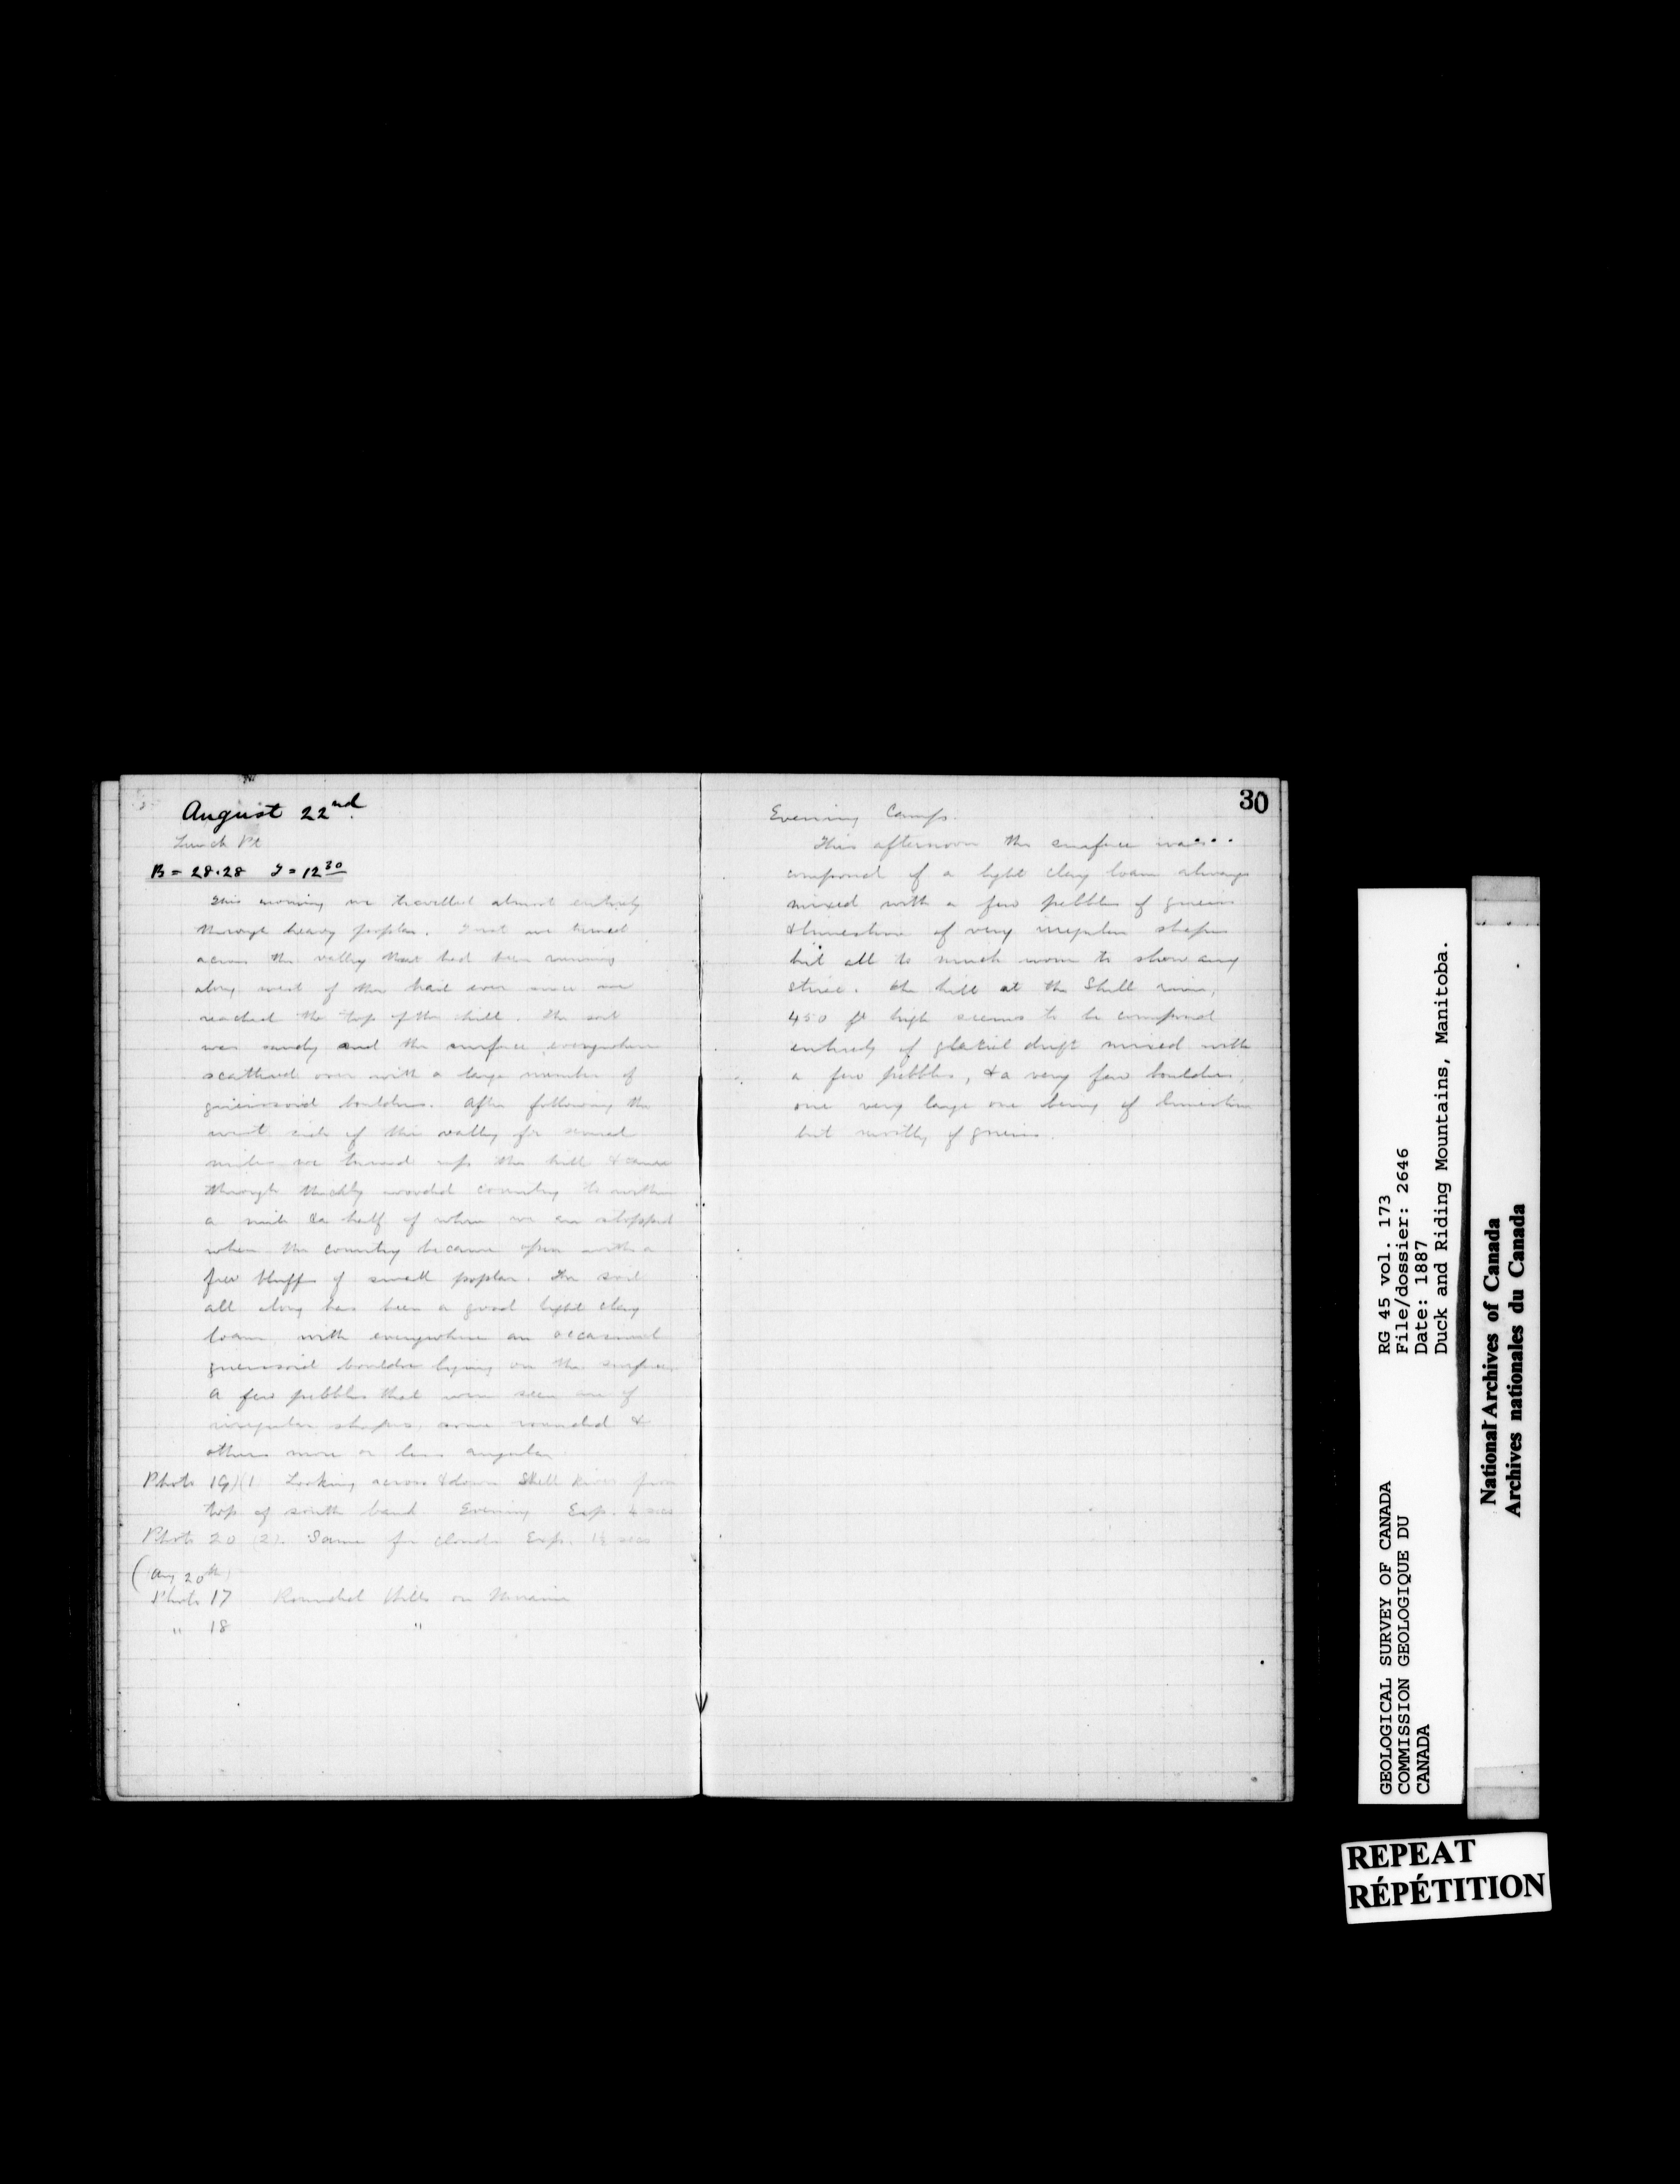 August 22nd.
Lunch Pt
B = 28.28 T = 12 30
This morning we travelled almost entirely
through heavy poplar. First we turned
across the valley that had been running
along west of the trail ever since we
reached the top of the hill. The soil
was sandy and the surface everywhere
scattered over with a large number of
gneissoid boulders. After following the
west side of this valley for several
miles we turned up the hill & came
through thickly wooded country to within
a mile & a half of where we are stopped
when the country became open with a
few bluffs of small poplar. The soil
all along has been a good light clay
loam with everywhere an occasional
gneissoid boulder lying on the surface
A few pebbles that were seen are of
irregular shapes, some rounded &
others more or less angular
Photo 19 (1) Looking across & down Shell River from
top of south bank Evening Exp. 4 secs
Photo 20 (2). Same for clouds Exp. 1½ secs
(Aug 20th)
Photo 17 Rounded Hills on Moraine
" 18 "
30
Evening Camp.
This afternoon the surface was
composed of a light clay loam always
mixed with a few pebbles of gneiss
& limestone of very irregular shapes
but all to much worn to show any
striae. The hill at the Shell river,
450 ft high seems to be composed
entirely of glacial drift mixed with
a few pebbles, & a very few boulders,
one very large one being of limestone
but mostly of gneiss.
GEOLOGICAL SURVEY OF CANADA RG 45 vol. 173
COMMISSION GEOLOGIQUE DU File/dossier: 2646
CANADA Date: 1887
Duck and Riding Mountains, Manitoba.
National Archives of Canada
Archives nationales du Canada
REPEAT
RÉPÉTITION